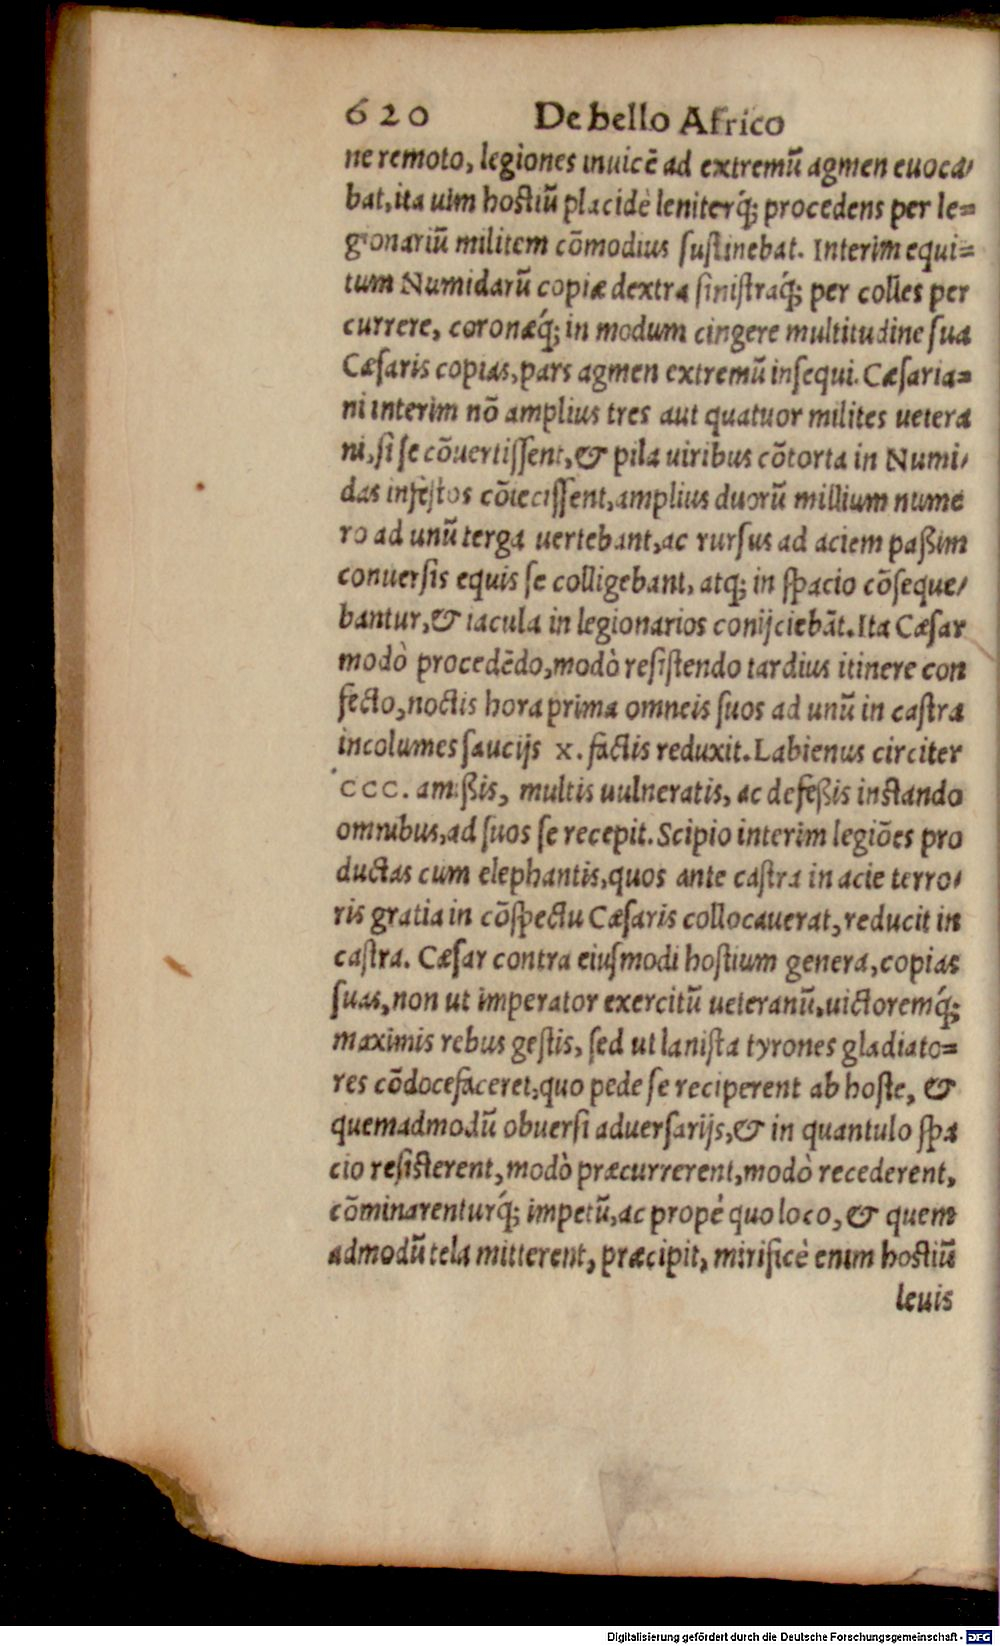 620 De bello Africo
ne remoto, legiones inuicē ad extremū agmen euoca/
bat, ita uim hostiū placidè leniterq́; procedens per le=
gionariū militem cōmodius sustinebat. Interim equi=
tum Numidarū copiæ dextra sinistraq́; per colles per
currere, coronæq́; in modum cingere multitudine sua
Cæsaris copias, pars agmen extremū insequi. Cæsaria=
ni interim nō amplius tres aut quatuor milites uetera
ni, si se cōuertissent, & pila uiribus cōtorta in Numi/
das infestos cōiecissent, amplius duorū millium nume
ro ad unū terga uertebant, ac rursus ad aciem paßim
conuersis equis se colligebant, atq; in spacio cōseque/
bantur, & iacula in legionarios conijciebāt. Ita Cæsar
modò procedēdo, modò resistendo tardius itinere con
fecto, noctis hora prima omneis suos ad unū in castra
incolumes saucijs x. factis reduxit. Labienus circiter
CCC. amißis, multis uulneratis, ac defeßis instando
omnibus, ad suos se recepit. Scipio interim legiōes pro
ductas cum elephantis, quos ante castra in acie terro/
ris gratia in cōspectu Cæsaris collocauerat, reducit in
castra. Cæsar contra eiusmodi hostium genera, copias
suas, non ut imperator exercitū ueteranū, uictoremq́;
maximis rebus gestis, sed ut lanista tyrones gladiato=
res cōdocefaceret, quo pede se reciperent ab hoste, &
quemadmodū obuersi aduersarijs, & in quantulo spa
cio resisterent, modò præcurrerent, modò recederent,
cōminarenturq́; impetū, ac propè quo loco, & quem
admodū tela mitterent, præcipit, mirificè enim hostiū
leuis
Digitalisierung gefördert durch die Deutsche Forschungsgemeinschaft - DFG